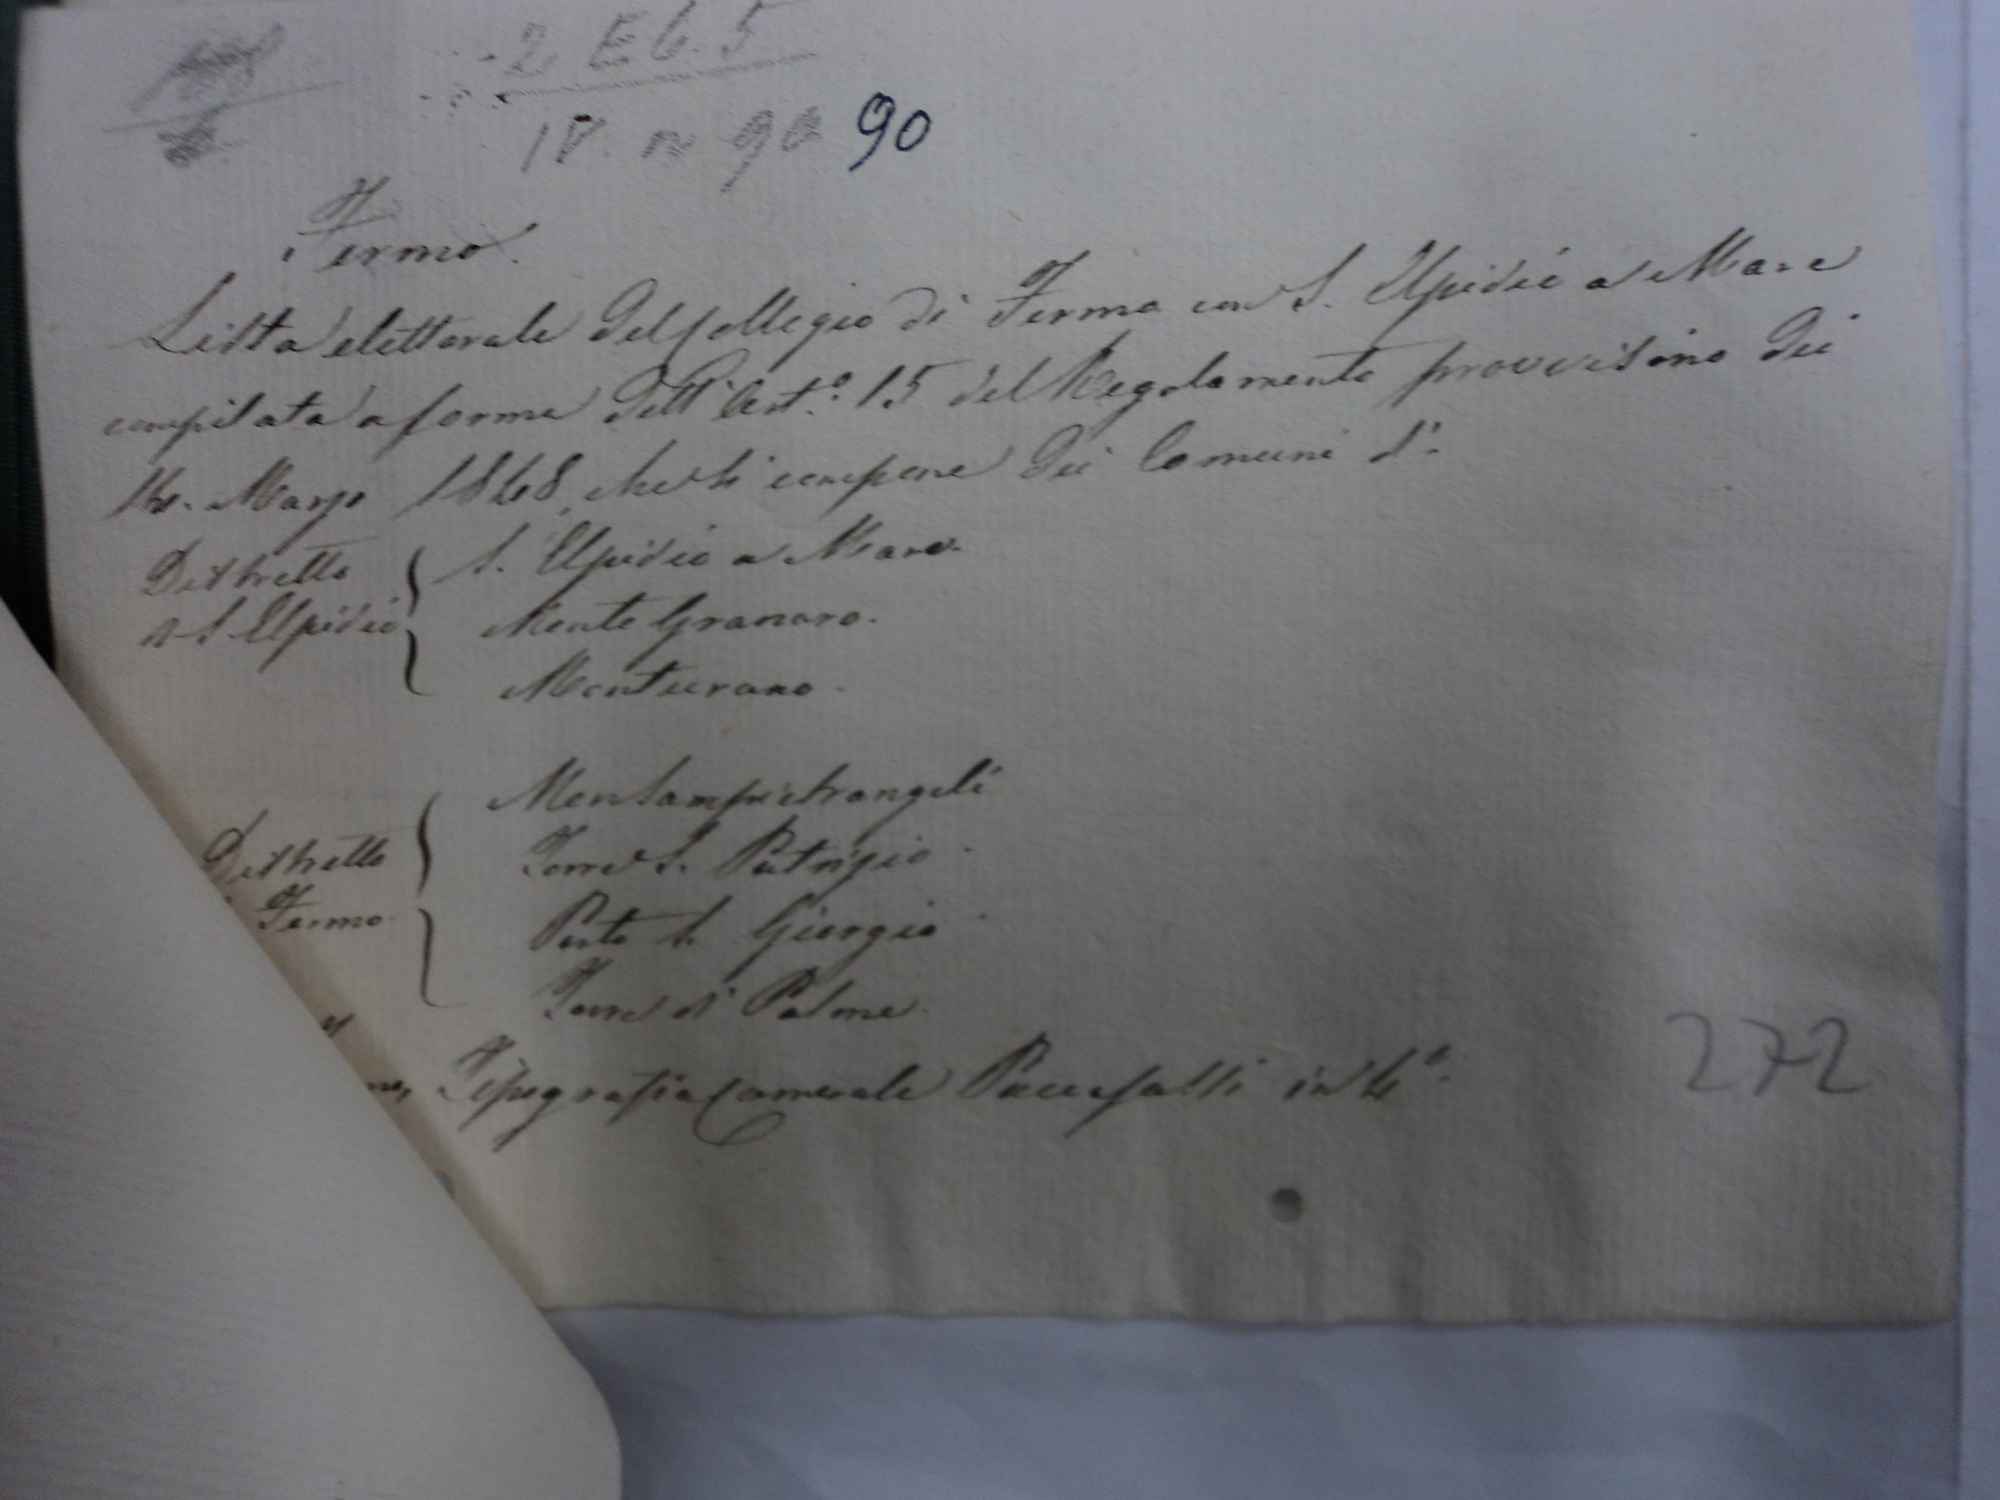 2 E 6. 5
18. n 90 90
Fermo.
Lista elettorale del Collegio di Fermo con S. Elpidio a Mare
compilata a forma dell'Art.° 15 del Regolamento provvisorio dei
14. Marzo 1848, che si compone dei Comuni di.
Distretto
di S. Elpidio
S. Elpidio a Mare.
Monte Granaro.
Monturano.
Distretto
Fermo.
Monsampietrangeli
Torre S. Patrizio.
Porto S. Giorgio.
Torre di Palme.
Tipografia Camerale Paccasassi in 4°.
272